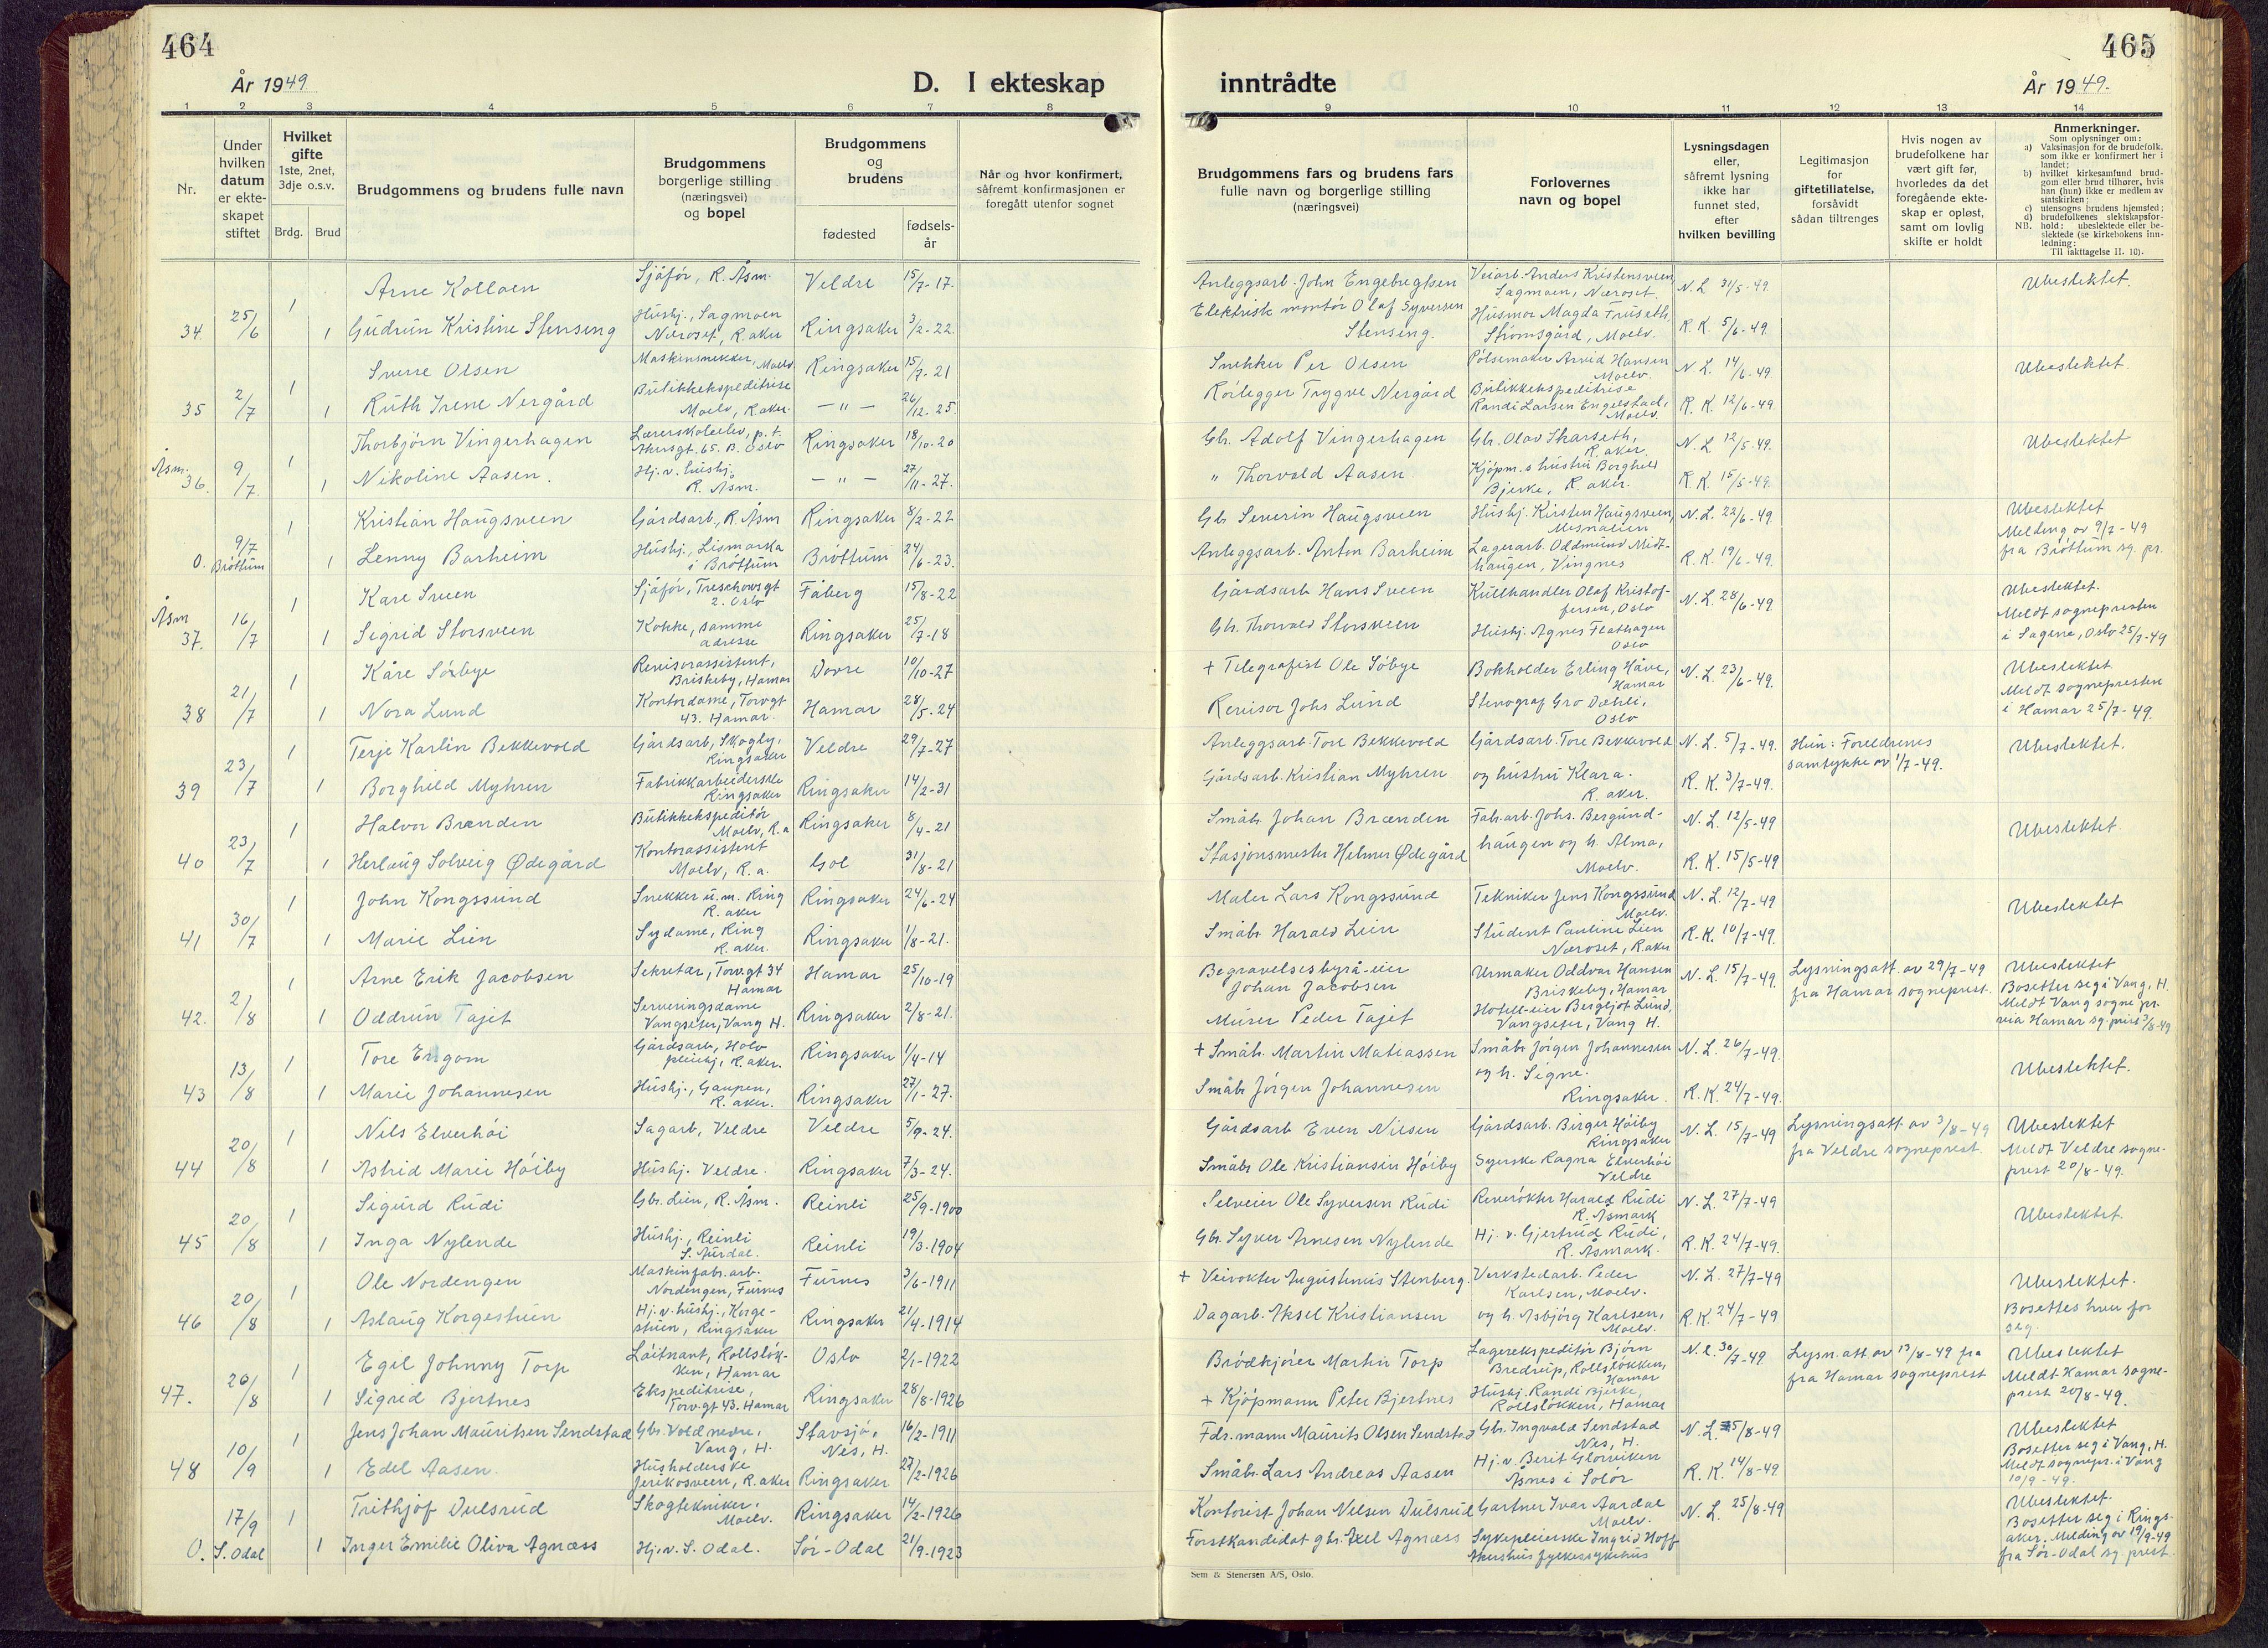 464
År 1949
D. I ekteskap
1 2 3 4 5 6 7 8
Nr.
Under hvilken datum er ekte-skapet stiftet
Hvilket gifte 1ste, 2net, 3dje o.s.v.
Brdg. Brud
Brudgommens og brudens fulle navn
Brudgommens borgerlige stilling (næringsvei) og bopel
Brudgommens og brudens
fødested
fødsels-år
Når og hvor konfirmert, såfremt konfirmasjonen er foregått utenfor sognet
1 Arne Kolloen Sjåfør, R. Åsm. Veldre 15/7-17.
34. 25/6 1 Gudrun Kristine Stenseng Hushj., Sagmoen Næroset, R.aker Ringsaker 3/2-22.
1 Sverre Olsen Maskinsnekker, Moelv Ringsaker 15/7-21
35 2/7 1 Ruth Irene Nergård Butikkekspeditrise Moelv, R.aker. — " — 26/12-25.
1 Thorbjørn Vingerhagen Lærerskoleelev, p.t. Akersgt. 65. B. Oslo Ringsaker 18/10-20
Åsm. 36. 9/7. 1 Nikoline Aasen. Hj. v. hushj. R. Åsm. — " — 27/11-27.
1 Kristian Haugsveen Gårdsarb., R. Åsm Ringsaker 8/2-22
0. 9/7 Brøttum 1 Lenny Barheim Hushj., Lismarka i Brøttum Brøttum 24/6-23.
1 Kåre Sveen Sjåfør, Treschowsgt 2. Oslo Fåberg 15/8-22
Åsm 37. 16/7 1 Sigrid Storsveen Kokke, samme adresse Ringsaker 25/7-18
1 Kåre Sørbye Revisorassistent, Briskeby, Hamar Dovre 10/10-27
38 21/7 1 Nora Lund Kontordame, Torvgt 43. Hamar. Hamar 28/5-24
1 Terje Karlin Bekkevold Gårdsarb., Skogly, Ringsaker Veldre 29/7-27
39 23/7 1 Borghild Myhren Fabrikkarbeiderske Ringsaker Ringsaker 14/2-31
1 Halvor Brænden Butikkekspeditør Moelv, R.a Ringsaker 8/4-21
40 23/7 1 Herlaug Solveig Ødegård Kontorassistent Moelv, R.a. Gol 31/8-21
1 John Kongssund Snekker u.m. Ring R. aker Ringsaker 24/6-24
41 30/7 1 Marie Lien Sydame, Ring R. aker. Ringsaker 1/8-21.
1 Arne Erik Jacobsen Sekretær, Torvgt 34 Hamar Hamar 25/10-19
42. 2/8 1 Oddrun Tajet Serveringsdame Vangseter, Vang H. Ringsaker 2/8-21.
1 Tore Engom Gårdsarb., Holo pleiehj, R.aker. Ringsaker 1/4-14
43 13/8 1 Marie Johannesen Hushj., Gaupen, R. aker. Ringsaker 27/1-27.
1 Nils Elverhøi Sagarb., Veldre Veldre 5/9-24.
44 20/8 1 Astrid Marie Høiby Hushj. Veldre. Ringsaker 7/3-24.
1 Sigurd Rudi Gbr. Lien, R. Åsm. Reinli 25/9-1900
45 20/8 1 Inga Nylende Hushj., Reinli S. Aurdal. Reinli 19/3-1904
1 Ole Nordengen Maskinfabr.arb. Nordengen, Furnes Furnes 3/6-1911
46 20/8 1 Aslaug Korgestuen Hj. v. hushj., Korge-stuen, Ringsaker Ringsaker 21/4-1914
1 Egil Johnny Torp Løitnant, Rolløk-ken, Hamar Oslo 2/1-1922
47. 26/8 1 Sigrid Bjertnes Ekspeditrise, Torvgt 43. Hamar Ringsaker 28/8-1926
1 Jens Johan Mauritsen Sendstad Gbr. Vold nedre, Vang, H. Stavsjø, Nes, H. 16/2-1911
48 10/9 1 Edel Aasen. Husholderske Jerikosveen, R.aker Ringsaker 27/2-1926
1 Trithjof Dulsrud Skogtekniker, Moelv. Ringsaker 14/2-1926
0. 17/9 S. Odal 1 Inger Emilie Oliva Agnæss Hj. v. S. Odal. Sør-Odal 21/9-1923
465
inntrådte
År 1949.
9 10 11 12 13 14
Brudgommens fars og brudens fars fulle navn og borgerlige stilling (næringsvei)
Forlovernes navn og bopel
Lysningsdagen eller, såfremt lysning ikke har funnet sted, efter hvilken bevilling
Legitimasjon for giftetillatelse, forsåvidt sådan tiltrenges
Hvis nogen av brudefolkene har vært gift før, hvorledes da det foregående ekte-skap er opløst, samt om lovlig skifte er holdt
Anmerkninger.
Som oplysninger om:
a) Vaksinasjon for de brudefolk, som ikke er konfirmert her i landet;
b) hvilket kirkesamfund brud-gom eller brud tilhører, hvis han (hun) ikke er medlem av statskirken;
c) utensogns brudens hjemsted;
d) brudefolkenes slektskapsfor-hold: ubeslektede eller be-slektede (se kirkebokens inn-ledning:
NB. Til iakttagelse II. 10).
Anleggsarb. John Engebregtsen Veiarb. Anders Kristensveen, Sagmoen, Næroset. N. L. 31/5-49. Ubeslektet.
Elektrisk montør Olaf Syversen Stenseng. Husmor Magda Fruseth, Strømsgård, Moelv. R. K. 5/6-49.
Snekker Per Olsen Pølsemaker Arvid Hansen Moelv. N. L. 14/6-49 Ubeslektet.
Rørlegger Trygve Nergård Butikkekspeditrise Randi Larsen Engelstad, Moelv. R. K. 12/6-49
Gb. Adolf Vingerhagen Gb. Olav Skarseth, R. aker. N. L 12/5-49. Ubeslektet
" Thorvald Aasen Kjøpm.s hustru Borghild Bjerke, R. aker. R. K. 15/5-49.
Gb Severin Haugsveen Hushj. Kirsten Haugsveen, Mesnalien N. L. 22/6-49. Ubeslektet Melding av 9/7-49 fra Brøttum sg. pr.
Anleggsarb. Anton Barheim Lagerarb. Oddmund Midt-haugen, Vingnes R. K. 19/6-49.
Gårdsarb Hans Sveen Kullhandler Olaf Kristof-fersen, Oslo N. L. 28/6-49 Ubeslektet. Meldt sognepresten i Sagene, Oslo 25/7-49
Gb. Thorvald Storsveen Hushj. Agnes Flathagen Oslo
+ Telegrafist Ole Søbye Bokholder Erling Håve, Hamar N. L. 23/6-49. Ubeslektet Meldt sognepresten i Hamar 25/7-49.
Revisor Johs Lund Stenograf Gro Dæhli, Oslo
Anleggsarb. Tore Bekkevold Gårdsarb. Tore Bekkevold N. L. 5/7-49. Hun: Foreldrenes samtykke av 1/7-49. Ubeslektet.
Gårdsarb. Kristian Myhren og hustru Klara. R. aker. R. K. 3/7-49.
Småbr. Johan Brænden Fab.arb. Johs. Bergund- N. L. 12/5-49 Ubeslektet.
Stasjonsmester Helmer Ødegård haugen og h. Alma, Moelv. R. K. 15/5-49
Maler Lars Kongssund Tekniker Jens Kongssund Moelv. N. L. 12/7-49 Ubeslektet
Småbr Harald Lien Student Pauline Lien Næroset, R.aker R. K. 10/7-49.
Begravelsesbyrå-eier Johan Jacobsen Urmaker Oddvar Hansen Briskeby, Hamar N. L. 15/7-49. Lysningsatt. av 29/7-49 fra Hamar sogneprest. Ubeslektet Bosetter seg i Vang, H. Meldt Vang sogne pr. via Hamar sg. prest 3/8-49
Murer Peder Tajet Hotell-eier Bergljot Lund, Vangseter, Vang H.
+ Småb. Martin Matiassen Småbr Jørgen Johannesen N. L. 26/7-49. Ubeslektet.
Småbr Jørgen Johannesen og h. Signe. Ringsaker. R. K. 24/7-49.
Gårdsarb Even Nilsen Gårdsarb. Birger Høiby Ringsaker N. L. 15/7-49 Lysningsatt. av 3/8-49 fra Veldre sogneprest. Ubeslektet Meldt Veldre sogne-prest 20/8-49.
Småbr Ole Kristiansen Høiby Syerske Ragna Elverhøi Veldre
Selveier Ole Syversen Rudi Reverøkter Harald Rudi R. Åsmark N. L. 27/7-49 Ubeslektet.
Gbr. Syver Arnesen Nylende Hj. v. Gjertrud Rudi, R. Åsmark. R. K. 24/7-49.
+ Veivokter Augustinus Stenberg. Verkstedarb. Peder Karlsen, Moelv. N. L. 27/7-49 Ubeslektet. Bosettes hver for seg.
Dagarb. Aksel Kristiansen og h. Asbjørg Karlsen, Moelv. R. K. 24/7-49
Brødkjører Martin Torp Lagerekspeditør Bjørn Bredrup, Rolløkken, Hamar N. L. 30/7-49 Lysn. att av 13/8-49 fra fra Hamar sogneprest Ubeslektet Meldt Hamar sogne-prest 20/8-49.
+ Kjøpmann Peter Bjertnes Hushj. Randi Bjerke, Rolløkken, Hamar
Fdr. mann Maurits Olsen Sendstad Gb. Ingvald Sendstad Nes, H. N. L. 5/8-49 Ubeslektet Bosetter seg i Vang, H. Meldt sognepr. i Vang 10/9-49.
Småbr. Lars Andreas Aasen Hj. v. Berit Glorviken Åsnes i Solør R. K. 14/8-49
Kontorist Johan Nilsen Dulsrud Gartner Ivar Aardal Moelv. N. L. 25/8-49 Ubeslektet. Bosetter seg i Rings-aker. Melding av 19/9-49 fra Sør-Odal sg. prest.
Forstkandidat gbr. Axel Agnæss Sykepleierske Ingrid Hoff Akershus fylkessykehus
Sem & Stenersen A/S, Oslo.